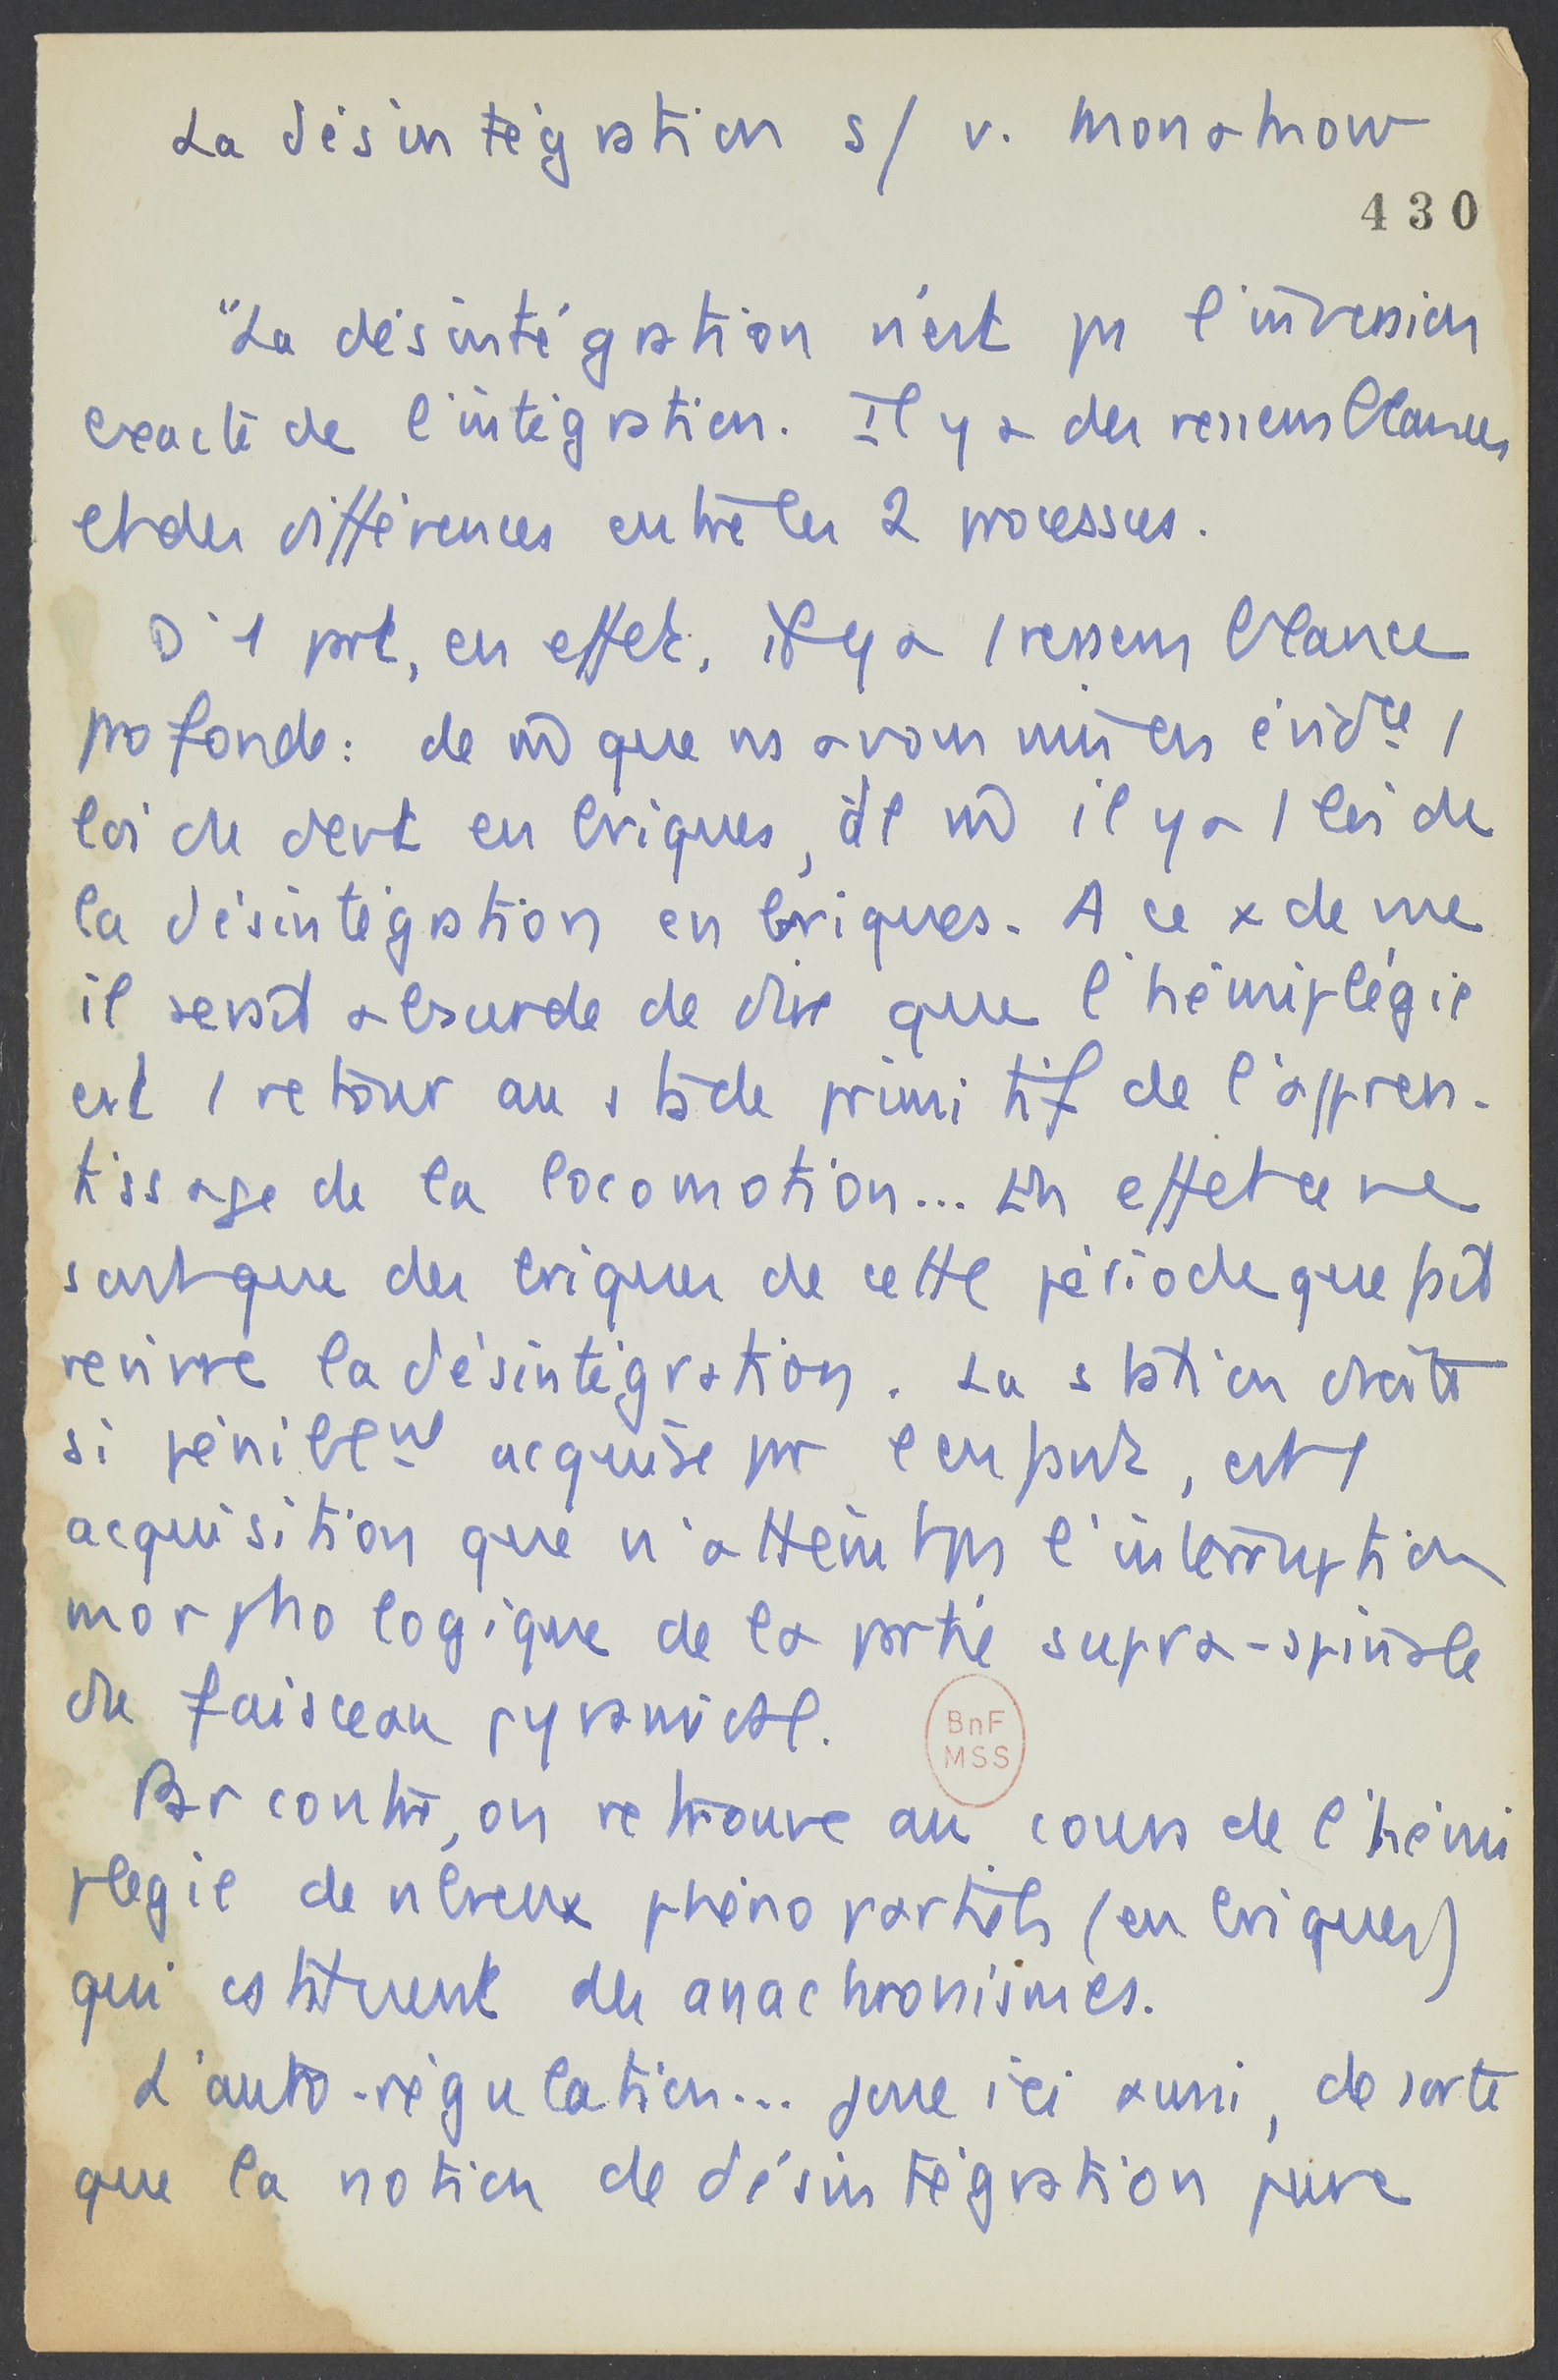 La désintégration s/ v. Monakow
430
"La désintégration n'est pas l'inversion
exacte de l'intégration. Il y a des ressemblances
et des différences entre les 2 processus.
D'1 part, en effet, il y a 1 ressemblance
profonde : de m̂ que ns avons mis en évidce 1
loi de devt en briques, de m̂ il y a 1 loi de
la désintégration en briques. A ce x de vue
il serait absurde de dire que l'hémiplégie
est 1 retour au stade primitif de l'appren-
tissage de la locomotion... En effet ce ne
sont que des briques de cette période que fait
revivre la désintégration. La station droite
si péniblemt acquise par l'enfant, est 1
acquisition que n'atteint pas l'interruption
morphologique de la partie supra-spinale
du faisceau pyramidal.
BnF
MSS
Par contre, on retrouve au cours de l'hémi
plégie de nbreux phéno partiels (en briques)
qui cstituent des anachronismes.
L'auto-régulation... joue ici aussi, de sorte
que la notion de désintégration pure